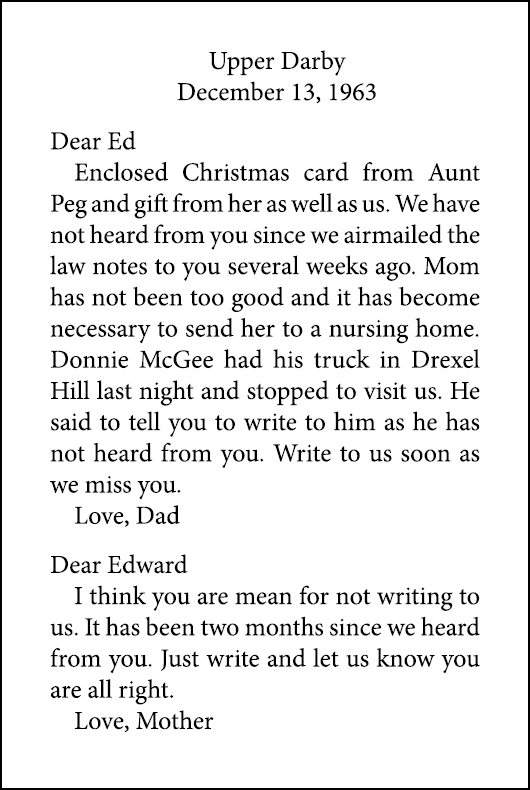 Upper Darby
December 13, 1963
Dear Ed
Enclosed Christmas card from Aunt
Peg and gift from her as well as us. We have
not heard from you since we airmailed the
law notes to you several weeks ago. Mom
has not been too good and it has become
necessary to send her to a nursing home.
Donnie McGee had his truck in Drexel
Hill last night and stopped to visit us. He
said to tell you to write to him as he has
not heard from you. Write to us soon as
we miss you.
Love, Dad
Dear Edward
I think you are mean for not writing to
us. It has been two months since we heard
from you. Just write and let us know you
are all right.
Love, Mother